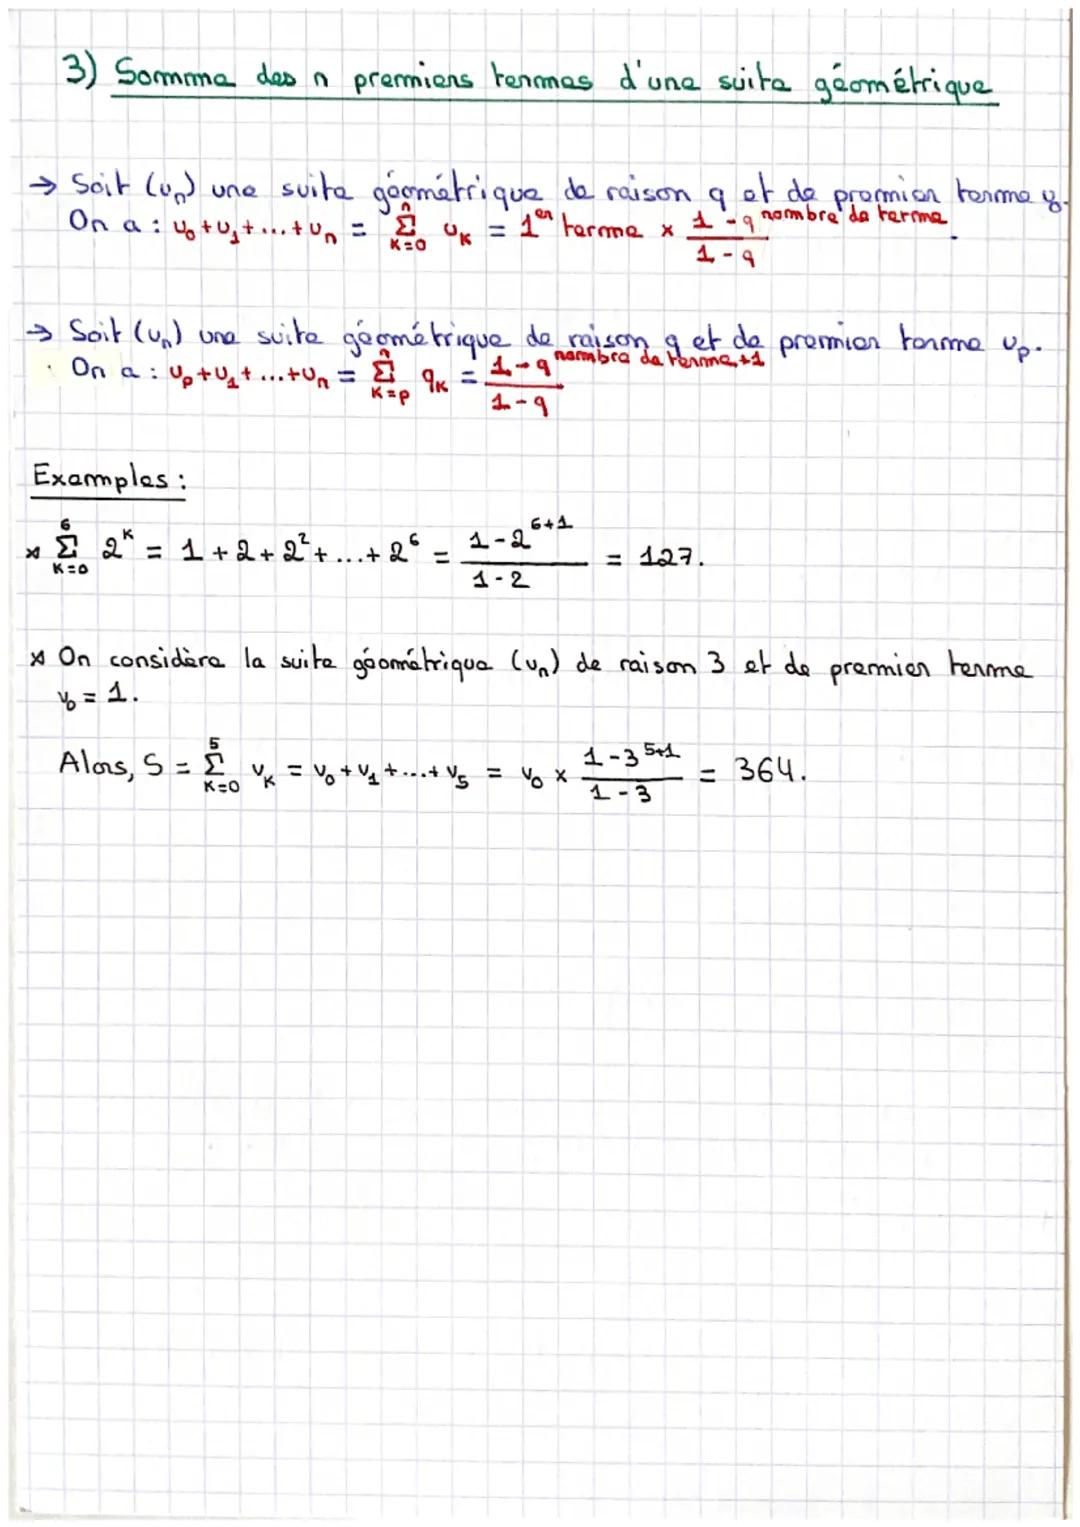 3) Somme des n premiers termes d'une suite géométrique
→ Soit (un) une suite géométrique de raison q et de premier terme u0.
On a : u0 + u1 + ... + un = Σ(k=0 à n) uk = 1er terme × (1 - q^nombre de terme)/(1 - q).
→ Soit (un) une suite géométrique de raison q et de premier terme up.
On a : up + u1 + ... + un = Σ(k=p à n) qk = (1 - q^nombre de terme +1)/(1 - q)
Exemples :
× Σ(k=0 à 6) 2^k = 1 + 2 + 2² + ... + 2^6 = (1 - 2^(6+1))/(1 - 2) = 127.
× On considère la suite géométrique (vn) de raison 3 et de premier terme
v0 = 1.
Alors, S = Σ(k=0 à 5) vk = v0 + v1 + ... + v5 = v0 × (1 - 3^(5+1))/(1 - 3) = 364.